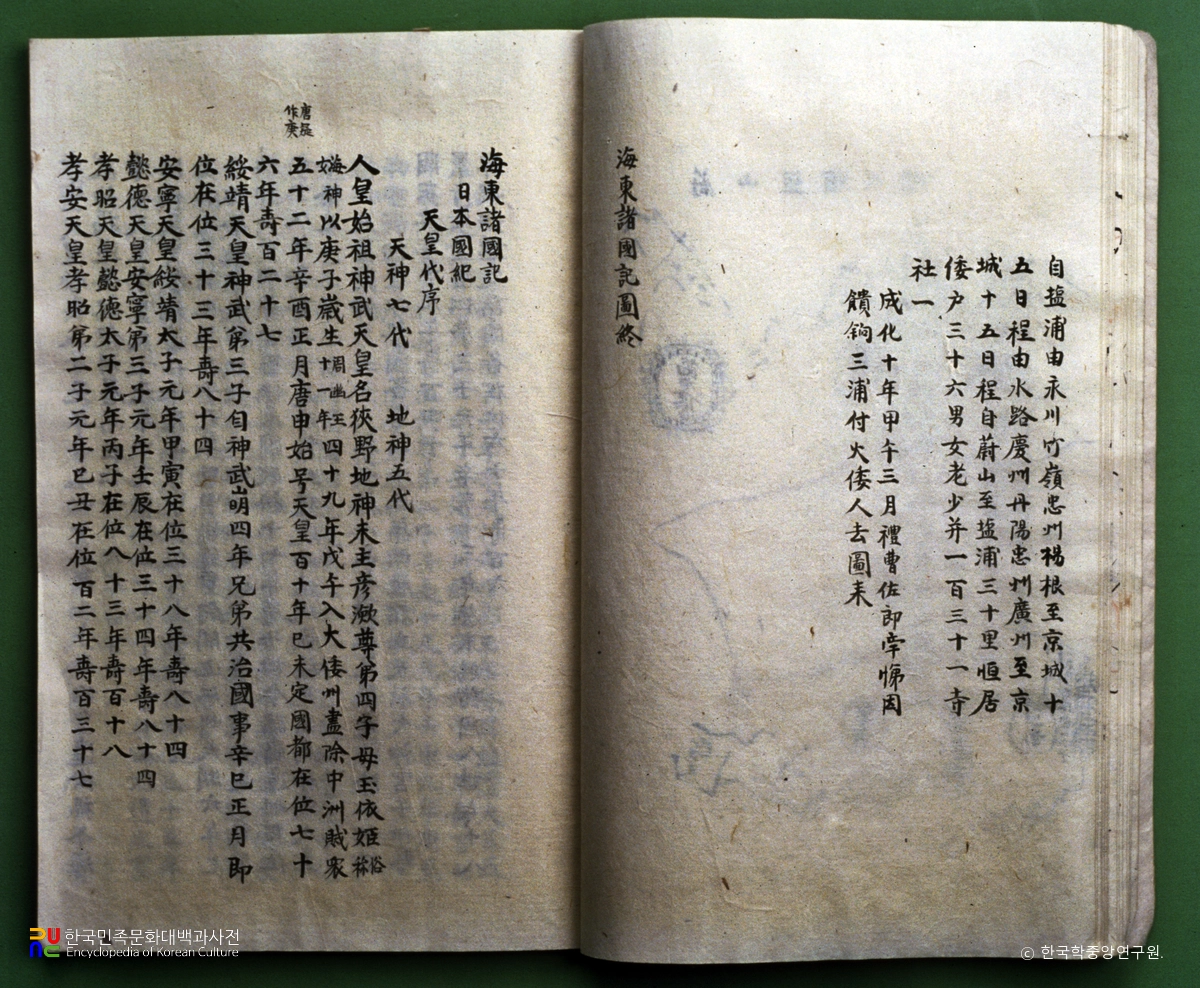 自塩浦由永川竹嶺忠州楊根至京城十
五日程由水路慶州丹陽忠州廣州至京
城十五日程自蔚山至塩浦三十里恒居
倭戶三十六男女老少并一百三十一寺
社一
成化十年甲午三月禮曹佐郎南悌因
饋餉三浦付火倭人去圖来
海東諸國記圖終
海東諸國記
日本國紀
天皇代序
天神七代 地神五代
人皇始祖神武天皇名狹野地神末主彦瀲尊第四子母玉依姬俗称
海神以庚子歲生周幽王十一年四十九年戊午入大倭州盡除中洲賊衆
五十二年辛酉正月唐申始号天皇百十年己未定國都在位七十
唐疑作庚
六年壽百二十七
綏靖天皇神武第三子自神武崩四年兄弟共治國事辛巳正月即
位在位三十三年壽八十四
安寧天皇綏靖太子元年甲寅在位三十八年壽八十四
懿德天皇安寧第三子元年壬辰在位三十四年壽八十四
孝昭天皇懿德太子元年丙子在位八十三年壽百十八
孝安天皇孝昭第二子元年己丑在位百二年壽百三十七
한국민족문화대백과사전
Encyclopedia of Korean Culture
© 한국학중앙연구원.